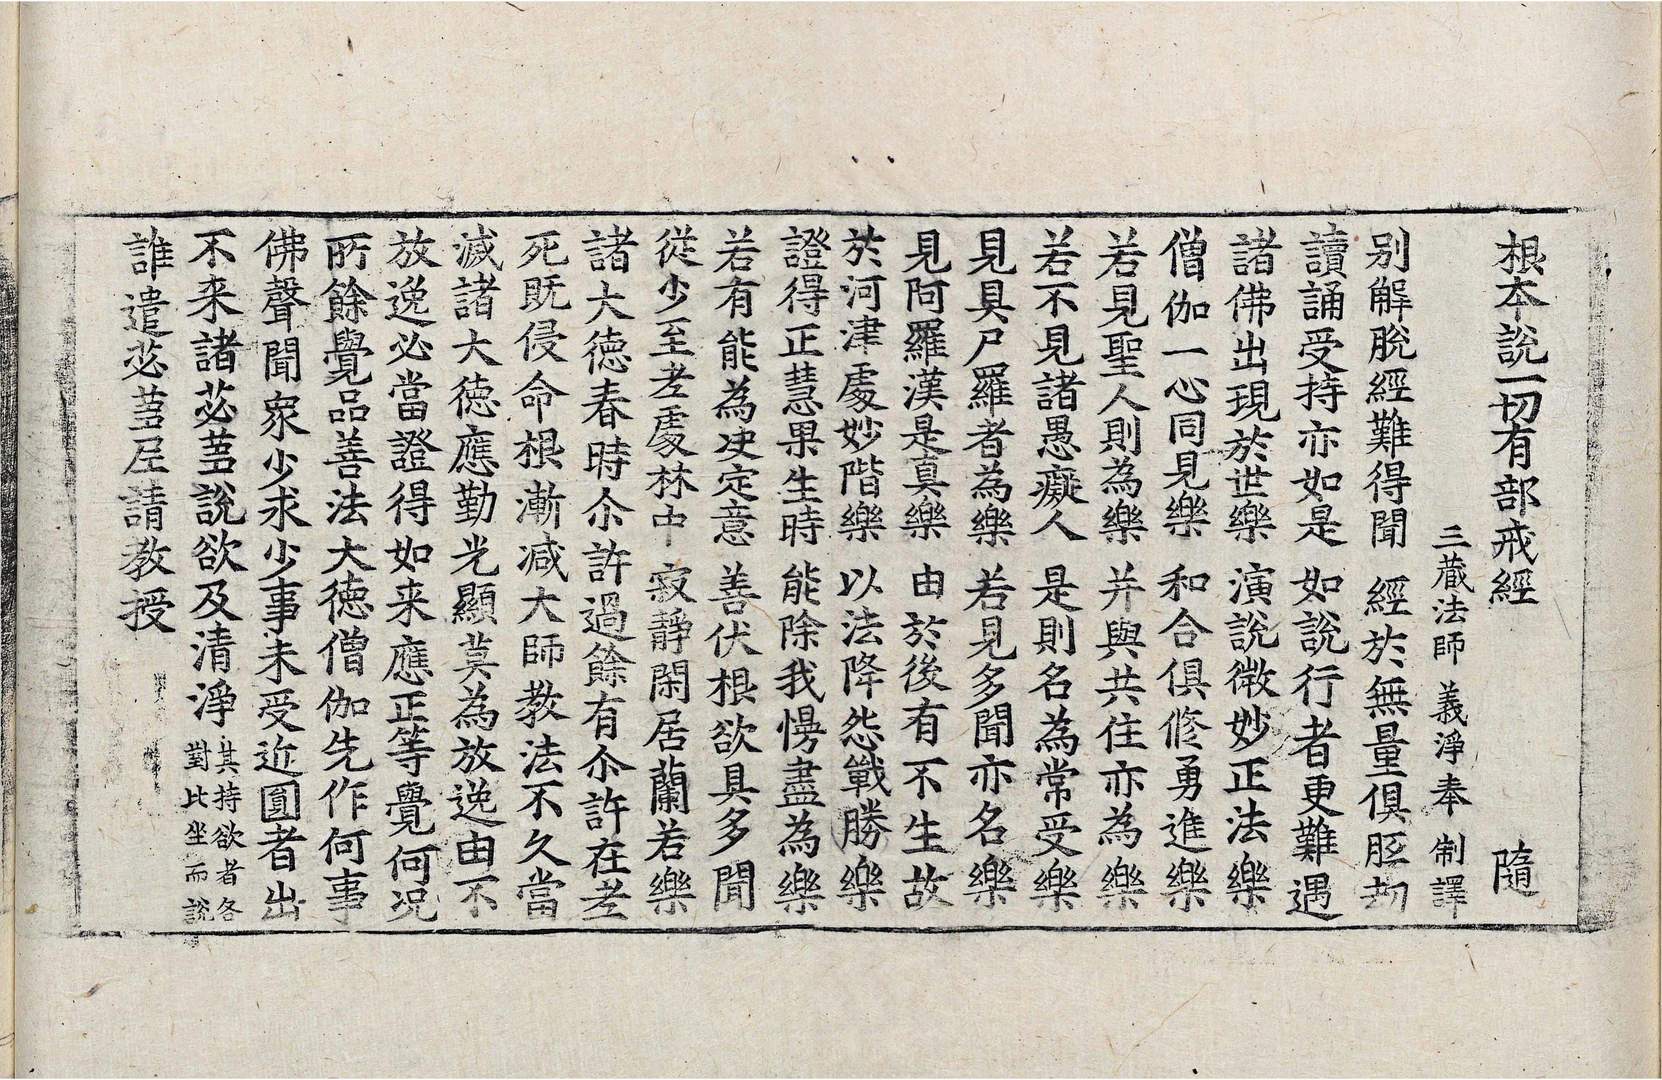 根本說一切有部戒經 隨
三藏法師 義淨奉 制譯
別解脫經難得聞 經於無量俱胝劫
讀誦受持亦如是 如說行者更難遇
諸佛出現於世樂 演說微妙正法樂
僧伽一心同見樂 和合俱修勇進樂
若見聖人則為樂 并與共住亦為樂
若不見諸愚癡人 是則名為常受樂
見具尸羅者為樂 若見多聞亦名樂
見阿羅漢是真樂 由於後有不生故
於河津處妙階樂 以法降怨戰勝樂
證得正慧果生時 能除我慢盡為樂
若有能為決定意 善伏根欲具多聞
從少至老處林中 寂靜閑居蘭若樂
諸大德春時尒許過餘有尒許在老
死既侵命根漸減大師教法不久當
滅諸大德應勤光顯莫為放逸由不
放逸必當證得如来應正等覺何況
所餘覺品善法大德僧伽先作何事
佛聲聞眾少求少事未受近圓者出
不来諸苾芻說欲及清淨其持欲者各對比坐而說
誰遣苾芻尼請教授